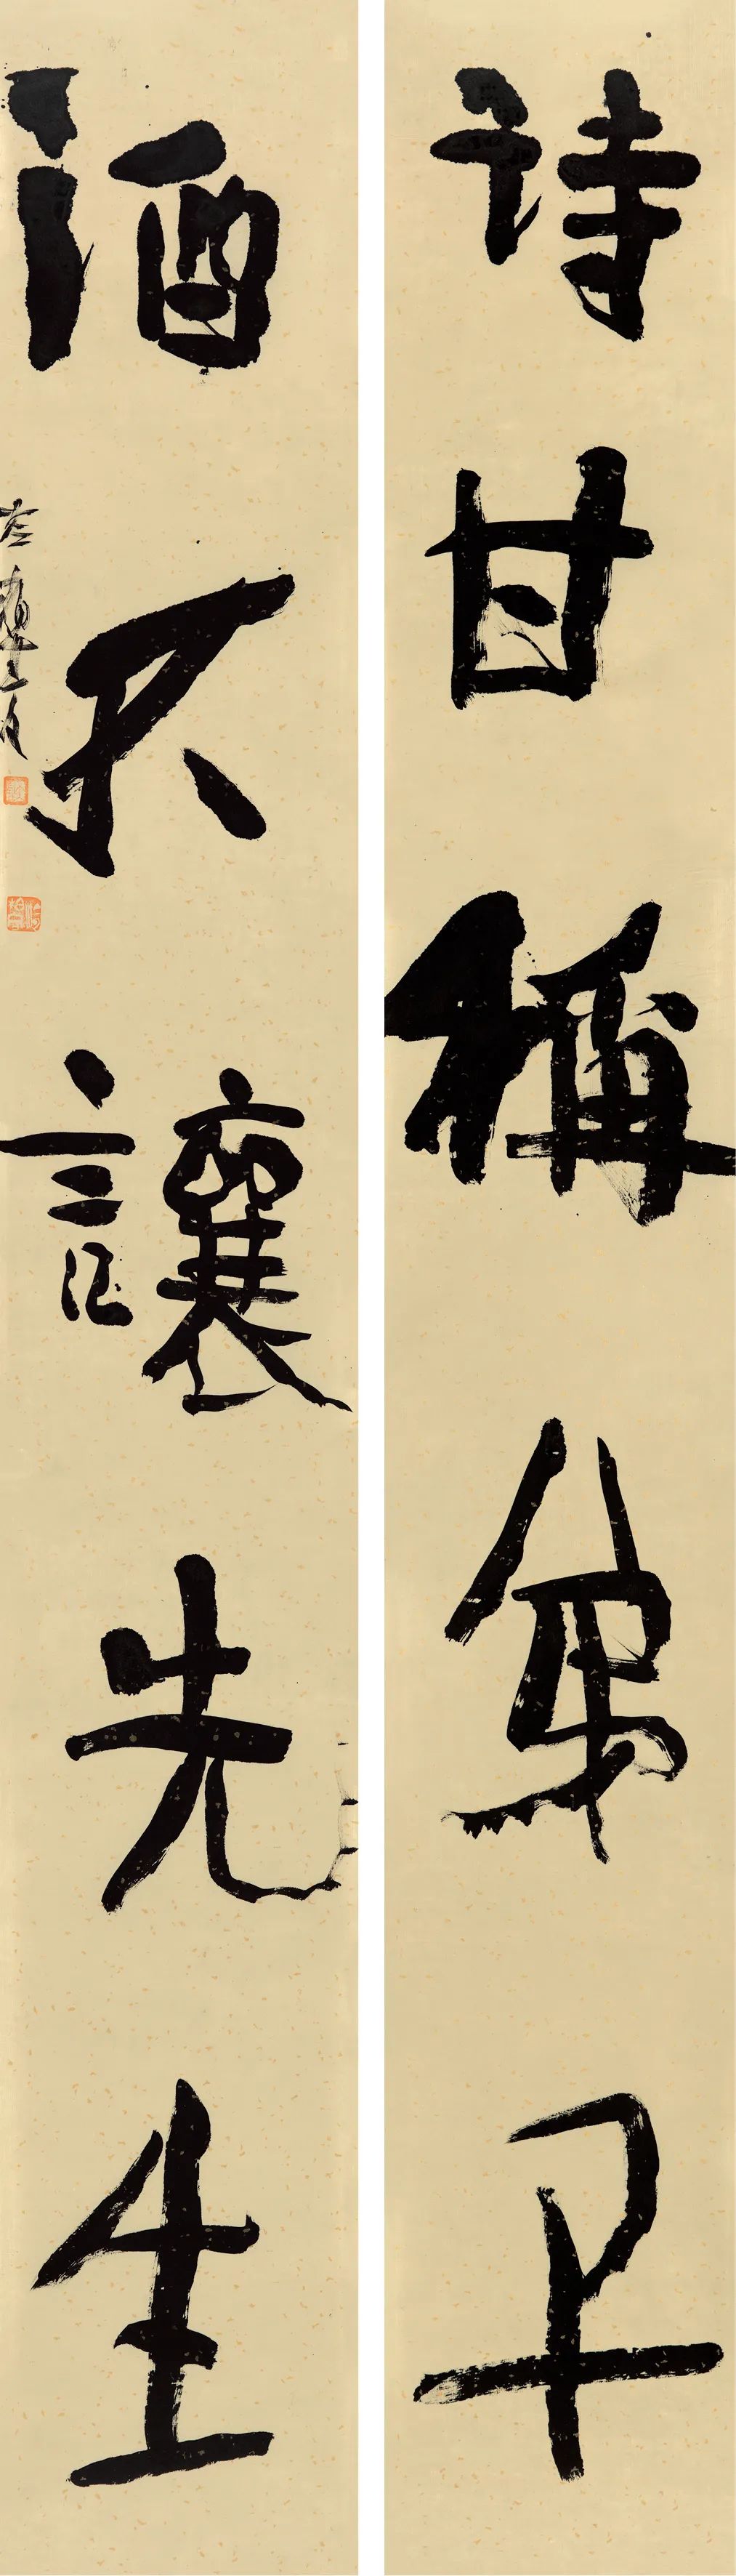 詩甘稱弟子
酒不讓先生